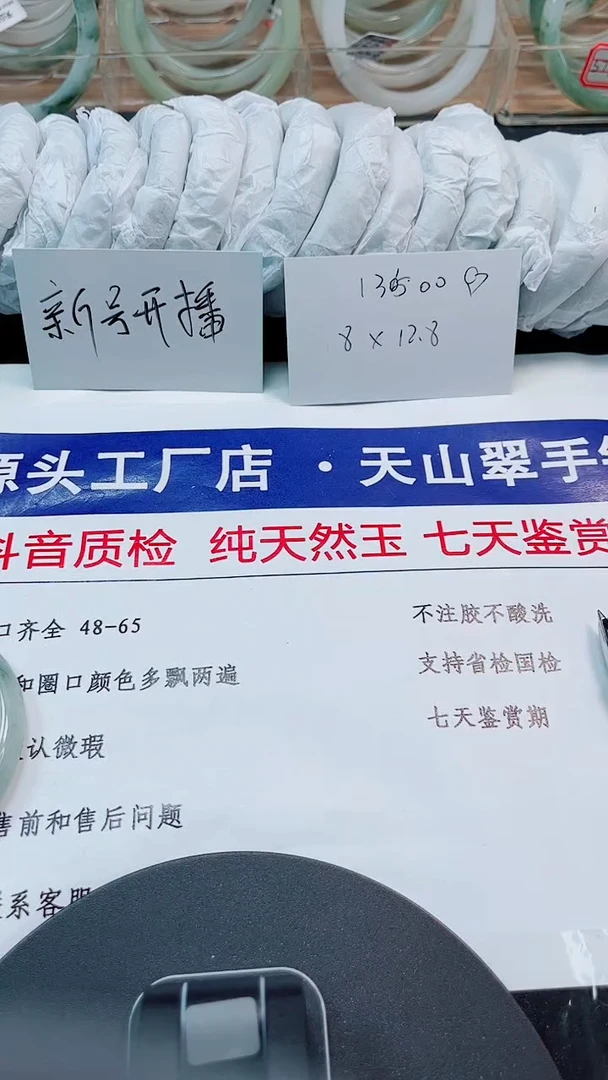 新号开播
8 x 12.8
源头工厂店 · 天山翠手
抖音质检 纯天然玉 七天鉴赏
口齐全 48-65
不注胶不酸洗
和圈口颜色多飘两遍
支持省检国检
七天鉴赏期
认微瑕
售前和售后问题
系客服